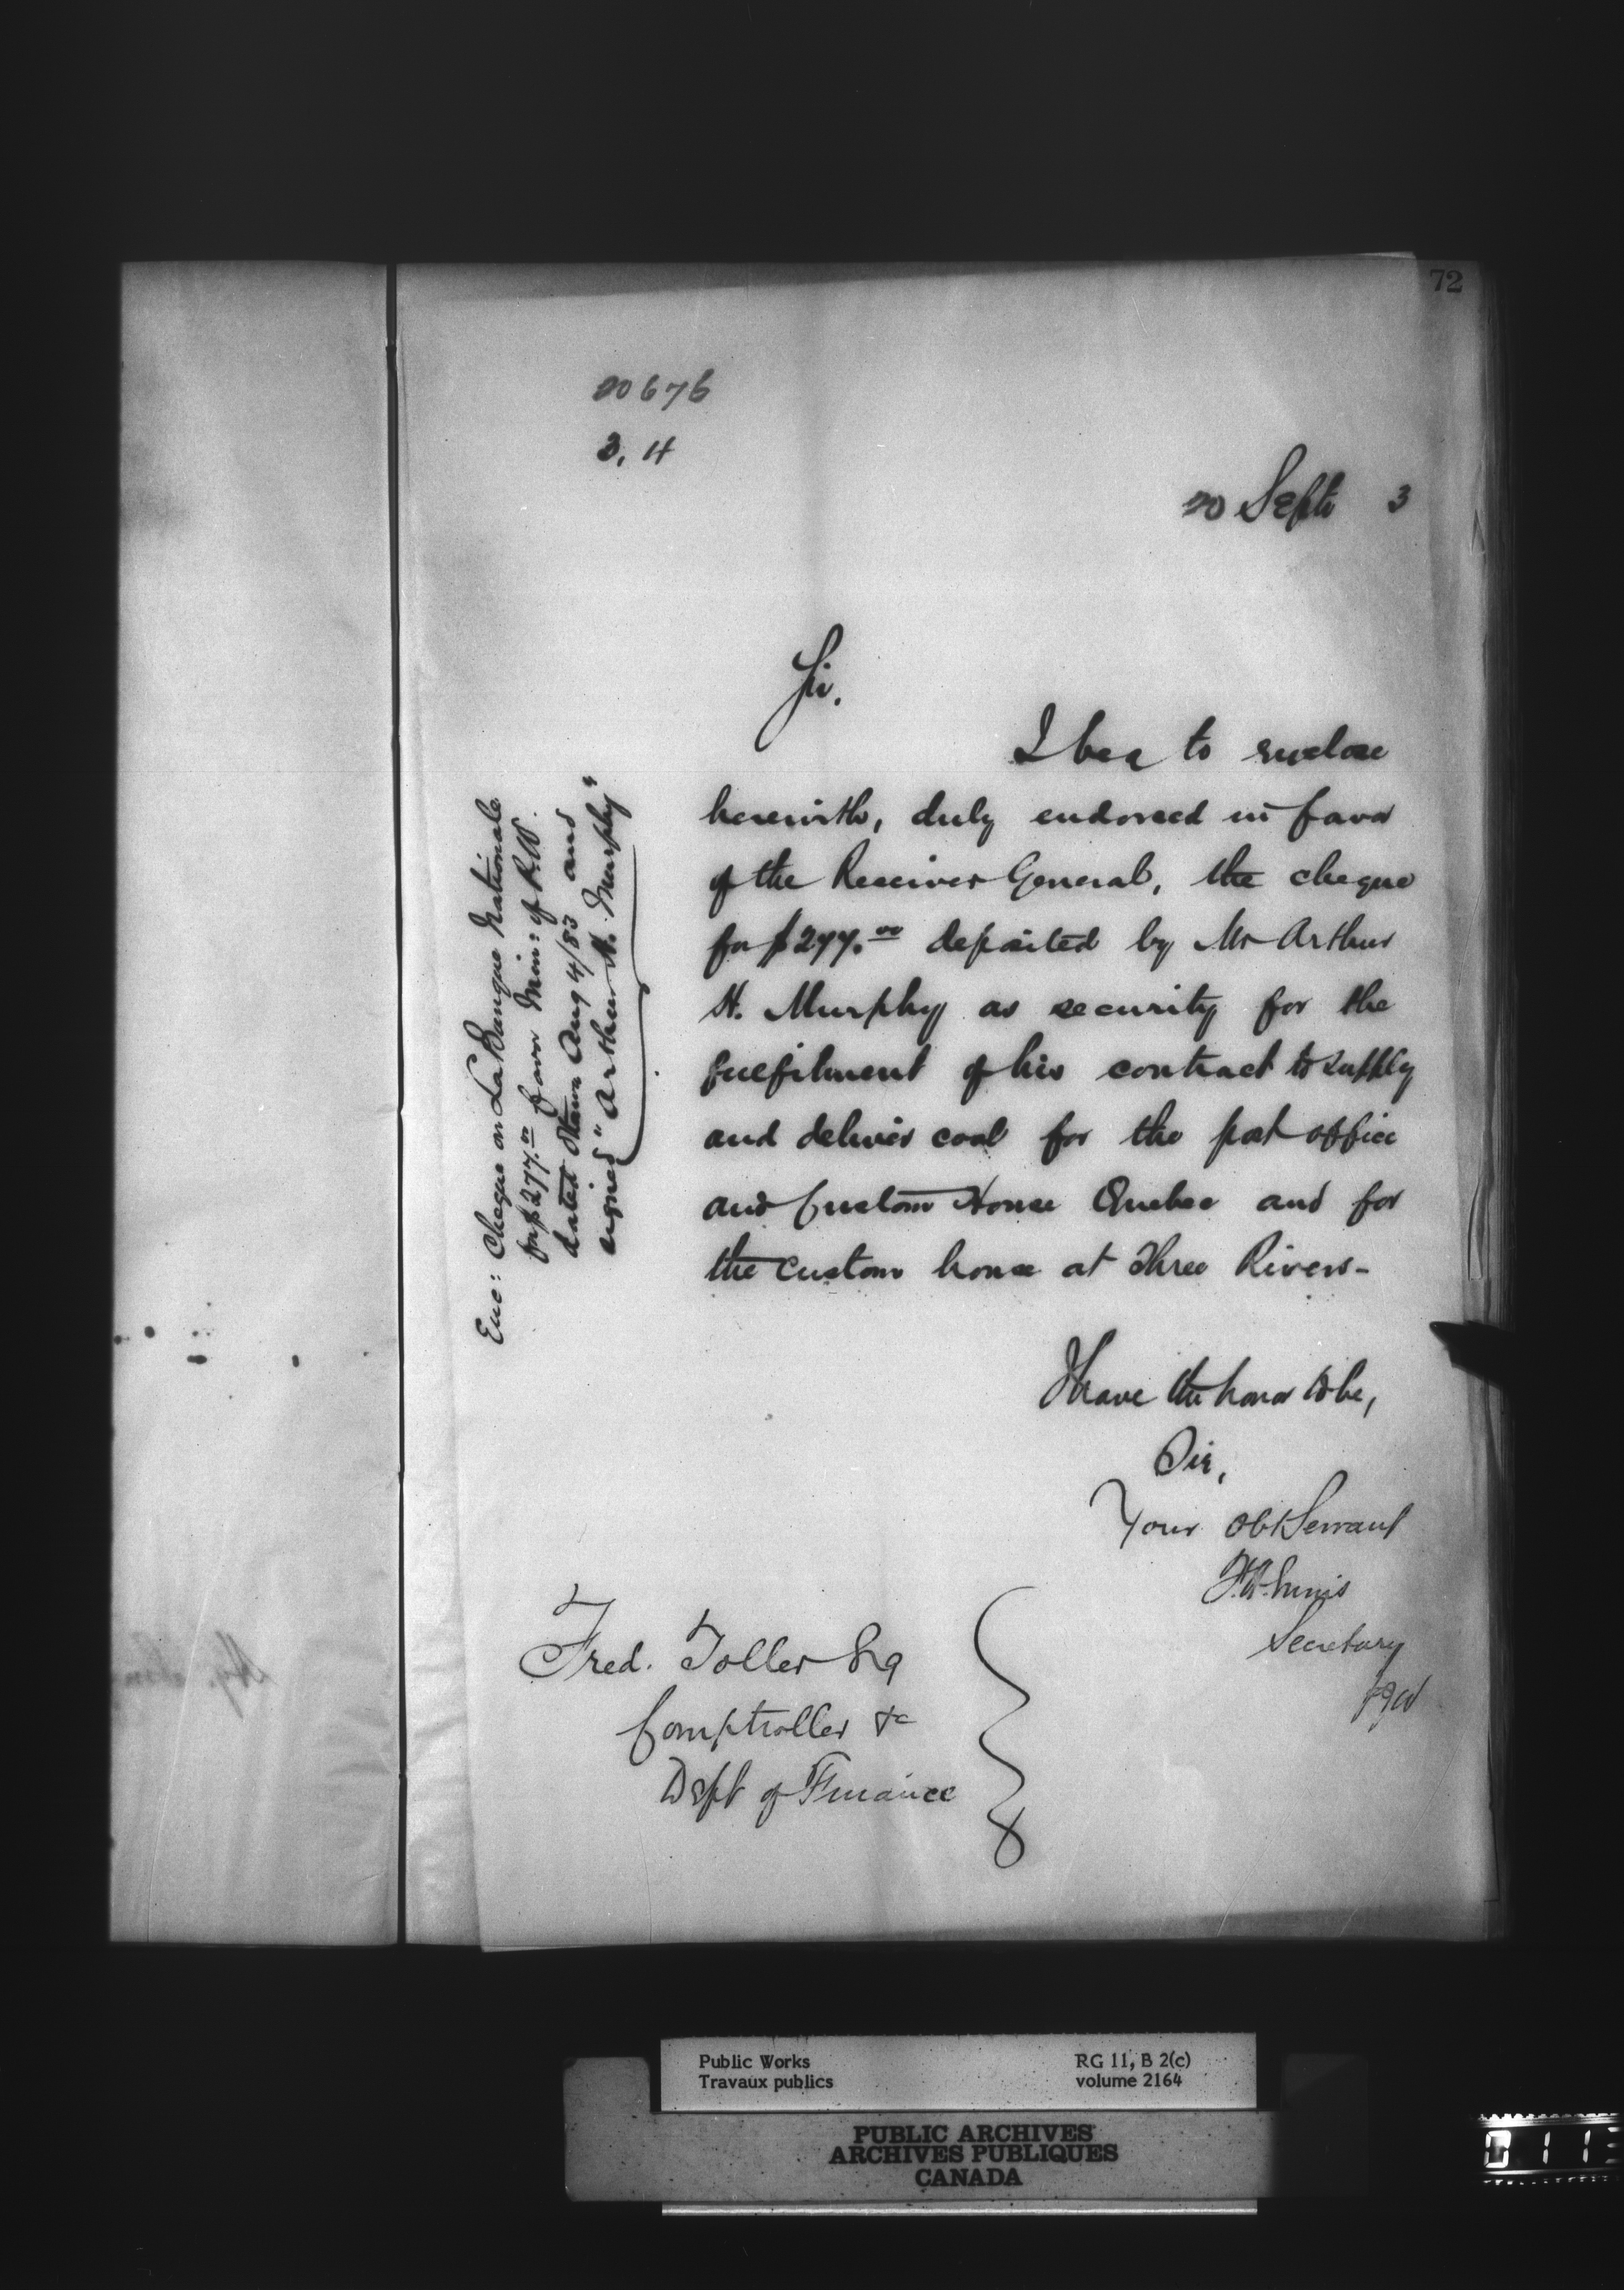 72
20676
3, 4
20 Septr 3
Sir,
I beg to enclose
herewith, duly endorsed in favor
of the Receiver General, the cheque
for $277.00 deposited by Mr Arthur
H. Murphy as security for the
fulfilment of his contract to supply
and deliver coal for the post office
and Custom House Quebec and for
the Custom house at Three Rivers-
Enc: Cheque on La Banque Nationale
for $277.00 favor Min: of P.W.
dated Ottawa Aug 4/83 and
signed "Arthur H. Murphy"
I have the honor to be,
Sir,
Your Obt Servant
F.H. Ennis
Secretary
Fred. Toller Esq
Comptroller &c
Dept of Finance
Public Works
Travaux publics
RG 11, B 2(c)
volume 2164
PUBLIC ARCHIVES
ARCHIVES PUBLIQUES
CANADA